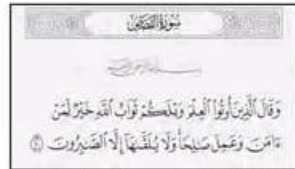 سُورَةُ القَصَصِ
بِسْمِ اللَّهِ الرَّحْمَنِ الرَّحِيمِ
وَقَالَ الَّذِينَ أُوتُوا الْعِلْمَ وَيْلَكُمْ ثَوَابُ اللَّهِ خَيْرٌ لِّمَنْ
ءَامَنَ وَعَمِلَ صَٰلِحًا وَلَا يُلَقَّىٰهَآ إِلَّا ٱلصَّٰبِرُونَ